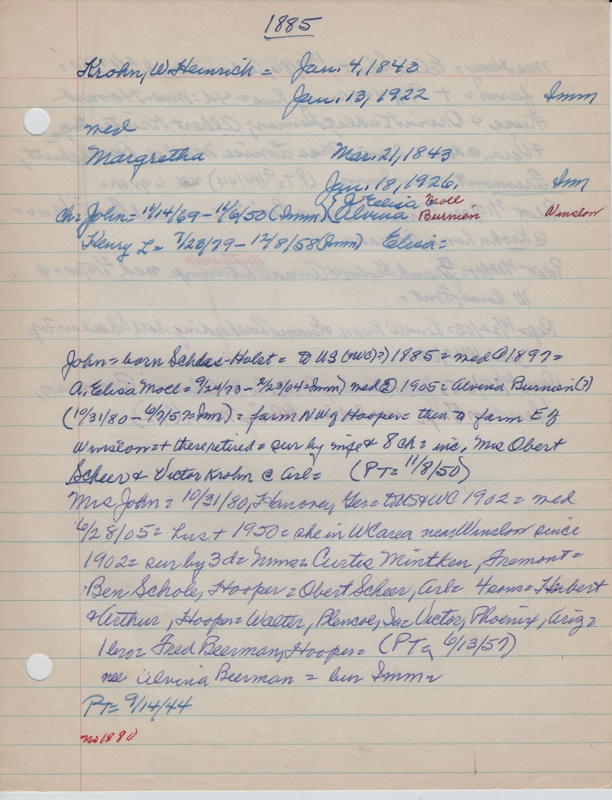 1885
Krohn, W. Heinrich = Jan. 4, 1843
Jan. 13, 1922 Imm
med
Margretha Mar. 21, 1843
Jan. 18, 1926. Imm
Ch: John = 11/14/69 - 11/6/50 (Imm) { A. Elisa Moll
Alvina Burnien Winslow
Henry L = 7/20/79 - 12/8/58 (Imm) Elisa =
John = born Schles-Holst = To US (+WC)?) 1885 = med ① 1897 =
A. Elisa Moll = 9/24/73 - 2/23/04 = Imm) med ② 1905 = Alvina Burnien (?)
(10/31/80 - 6/7/57 = Imm) = farm NW of Hooper = then to farm E of
Winslow = + there retired = sur by wife & 8 ch = inc, Mrs Obert
Scheer & Victor Krohn @ Arl = (PT = 11/8/50)
Mrs John = 10/31/80, Hanover, Ger = To US & WC 1902 = med
6/28/05 = Hus + 1950 = she in WC area near Winslow since
1902 = sur by 3 d = Mmes = Curtis Mintken, Fremont =
Ben Schole, Hooper = Obert Scheer, Arl = 4 sons = Herbert
& Arthur, Hooper = Walter, Plencoe, Ia = Victor, Phoenix, Ariz =
1 bro = Fred Beerman, Hooper = (PT = 6/13/57)
nee Alvina Beerman = bur Imm =
PT = 9/14/44
no 1880